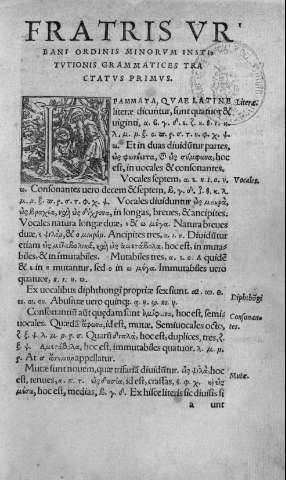 FRATRIS VR-
BANI ORDINIS MINORVM INSTI
TVTIONIS GRAMMATICES TRA
CTATVS PRIMVS.
GRAMMATA, QVAE LATINE
literæ dicuntur, sunt quatuor &
uiginti, α. β. γ. δ. ε. ζ. η. θ. ι. κ.
λ. μ. ν. ξ. ο. π. ρ. σ. τ. υ. φ. χ. ψ.
ω. Et in duas diuiduntur partes,
ὡς φωνήεντα, & ὡς σύμφωνα, hoc
est, in uocales & consonantes.
Vocales septem, α. ε. η. ι. ο. υ.
ω. Consonantes uero decem & septem, β. γ. δ. ζ. θ. κ. λ.
μ. ν. ξ. π. ρ. σ. τ. φ. χ. ψ. Vocales diuiduntur ὡς μακρὰ,
ὡς βραχέα, καὶ ὡς δίχρονα, in longas, breues, & ancipites.
Vocales natura longæ duæ, η & ω μέγα. Natura breues
duæ, ε ψιλὸν, & ο μικρόν. Ancipites tres, α. ι. υ. Diuiduntur
etiam ὡς μεταβολικὰ, καὶ ὡς ἀμετάβολα, hoc est, in muta
biles, & in immutabiles. Mutabiles tres, α. ε. ο. A quidem
& ε in η mutantur, sed ο in ω μέγα. Immutabiles uero
quatuor, η. ι. υ. ω.
Ex uocalibus diphthongi propriæ sex fiunt. αι. αυ. ει.
ευ. οι. ου. Abusiuæ uero quinque
Consonantium aliæ quædam sunt ἡμίφωνα, hoc est, semi-
uocales. Quædam ἄφωνα, id est, mutæ. Semiuocales octo,
ζ. ξ. ψ. λ. μ. ν. ρ. σ. Quarum διπλᾶ, hoc est, duplices, tres, ζ.
ξ. ψ. Ἀμετάβολα, hoc est, immutabiles quatuor. λ. μ. ν.
ρ. At σ appellatur.
Mutæ sunt nouem, quæ trifariam diuiduntur. ὡς ψιλὰ, hoc
est, tenues, κ. π. τ. ὡς δασέα, id est, crassas, θ. φ. χ. καὶ ὡς
μέσα, hoc est, medias, β. γ. δ. Ex hisce literis sic diuisis si
a unt
Literæ.
Vocales.
Diphthōgi
Consonan-
tes.
Mutæ.